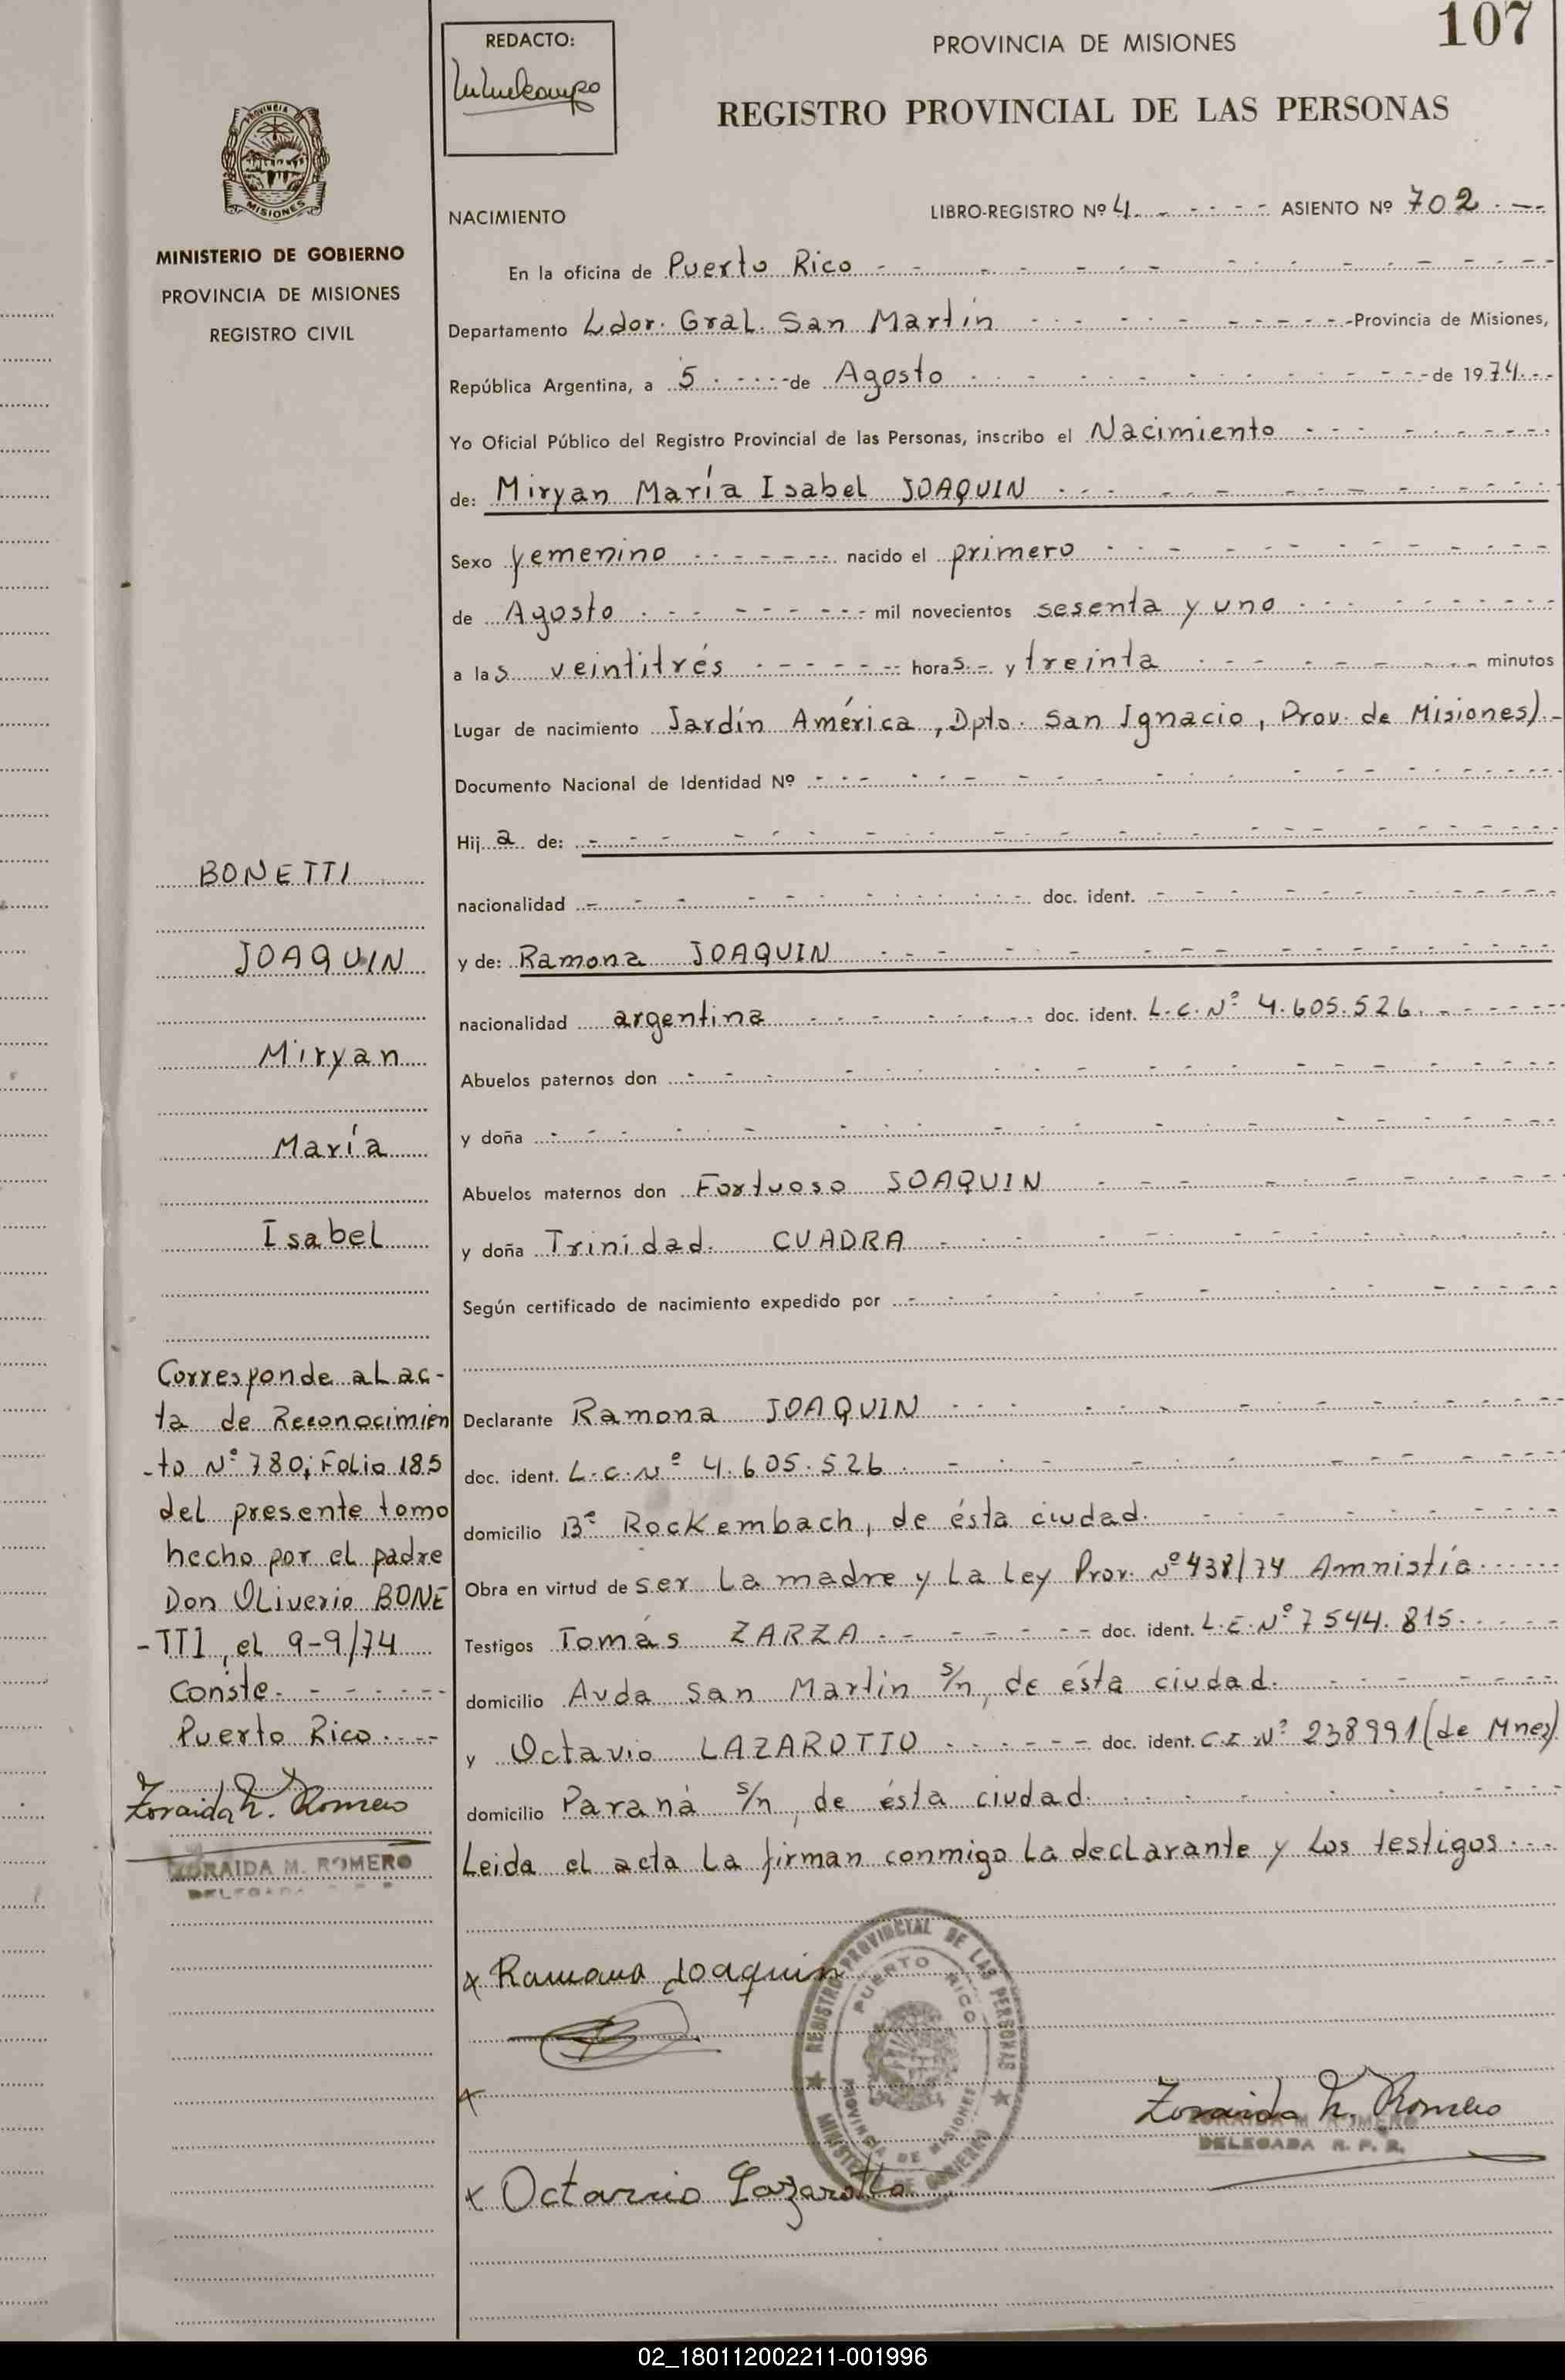 107
REDACTO:
PROVINCIA DE MISIONES
REGISTRO PROVINCIAL DE LAS PERSONAS
MISIONES
MINISTERIO DE GOBIERNO
PROVINCIA DE MISIONES
REGISTRO CIVIL
NACIMIENTO
LIBRO-REGISTRO Nº 4 ASIENTO Nº 702
En la oficina de Puerto Rico
Departamento Ldor. Gral. San Martín Provincia de Misiones,
República Argentina, a 5 de Agosto de 1974
Yo Oficial Público del Registro Provincial de las Personas, inscribo el Nacimiento
de: Miryan María Isabel JOAQUIN
Sexo femenino nacido el primero
de Agosto mil novecientos sesenta y uno
a las veintitrés horas y treinta minutos
Lugar de nacimiento Jardín América, Dpto. San Ignacio, Prov. de Misiones)
Documento Nacional de Identidad Nº
Hija de:
nacionalidad doc. ident.
y de: Ramona JOAQUIN
nacionalidad argentina doc. ident. L.C.Nº 4.605.526
Abuelos paternos don
y doña
Abuelos maternos don Fortuoso JOAQUIN
y doña Trinidad CUADRA
Según certificado de nacimiento expedido por
Declarante Ramona JOAQUIN
doc. ident. L.C.Nº 4.605.526
domicilio Bº Rockembach, de ésta ciudad.
Obra en virtud de ser la madre y la Ley Prov. Nº 438/74 Amnistía
Testigos Tomás ZARZA doc. ident. L.E.Nº 7544.815
domicilio Avda San Martín s/n, de ésta ciudad.
y Octavio LAZAROTTO doc. ident. C.I.Nº 238991 (de Mnes)
domicilio Paraná s/n, de ésta ciudad
Leida el acta la firman conmigo la declarante y los testigos
BONETTI
JOAQUIN
Miryan
María
Isabel
Corresponde al ac-
ta de Reconocimien
-to Nº 780, Folio 185
del presente tomo
hecho por el padre
Don Oliverio BONE
-TTI, el 9-9/74
Conste.
Puerto Rico
Zoraida M. Romero
ZORAIDA M. ROMERO
DELEGADA R. P. P.
x Ramona Joaquin
x
x Octavio Lazarotto
REGISTRO PROVINCIAL DE LAS PERSONAS
PUERTO RICO
PROVINCIA DE MISIONES
MINISTERIO DE GOBIERNO
Zoraida M. Romero
ZORAIDA M. ROMERO
DELEGADA R. P. P.
02_180112002211-001996